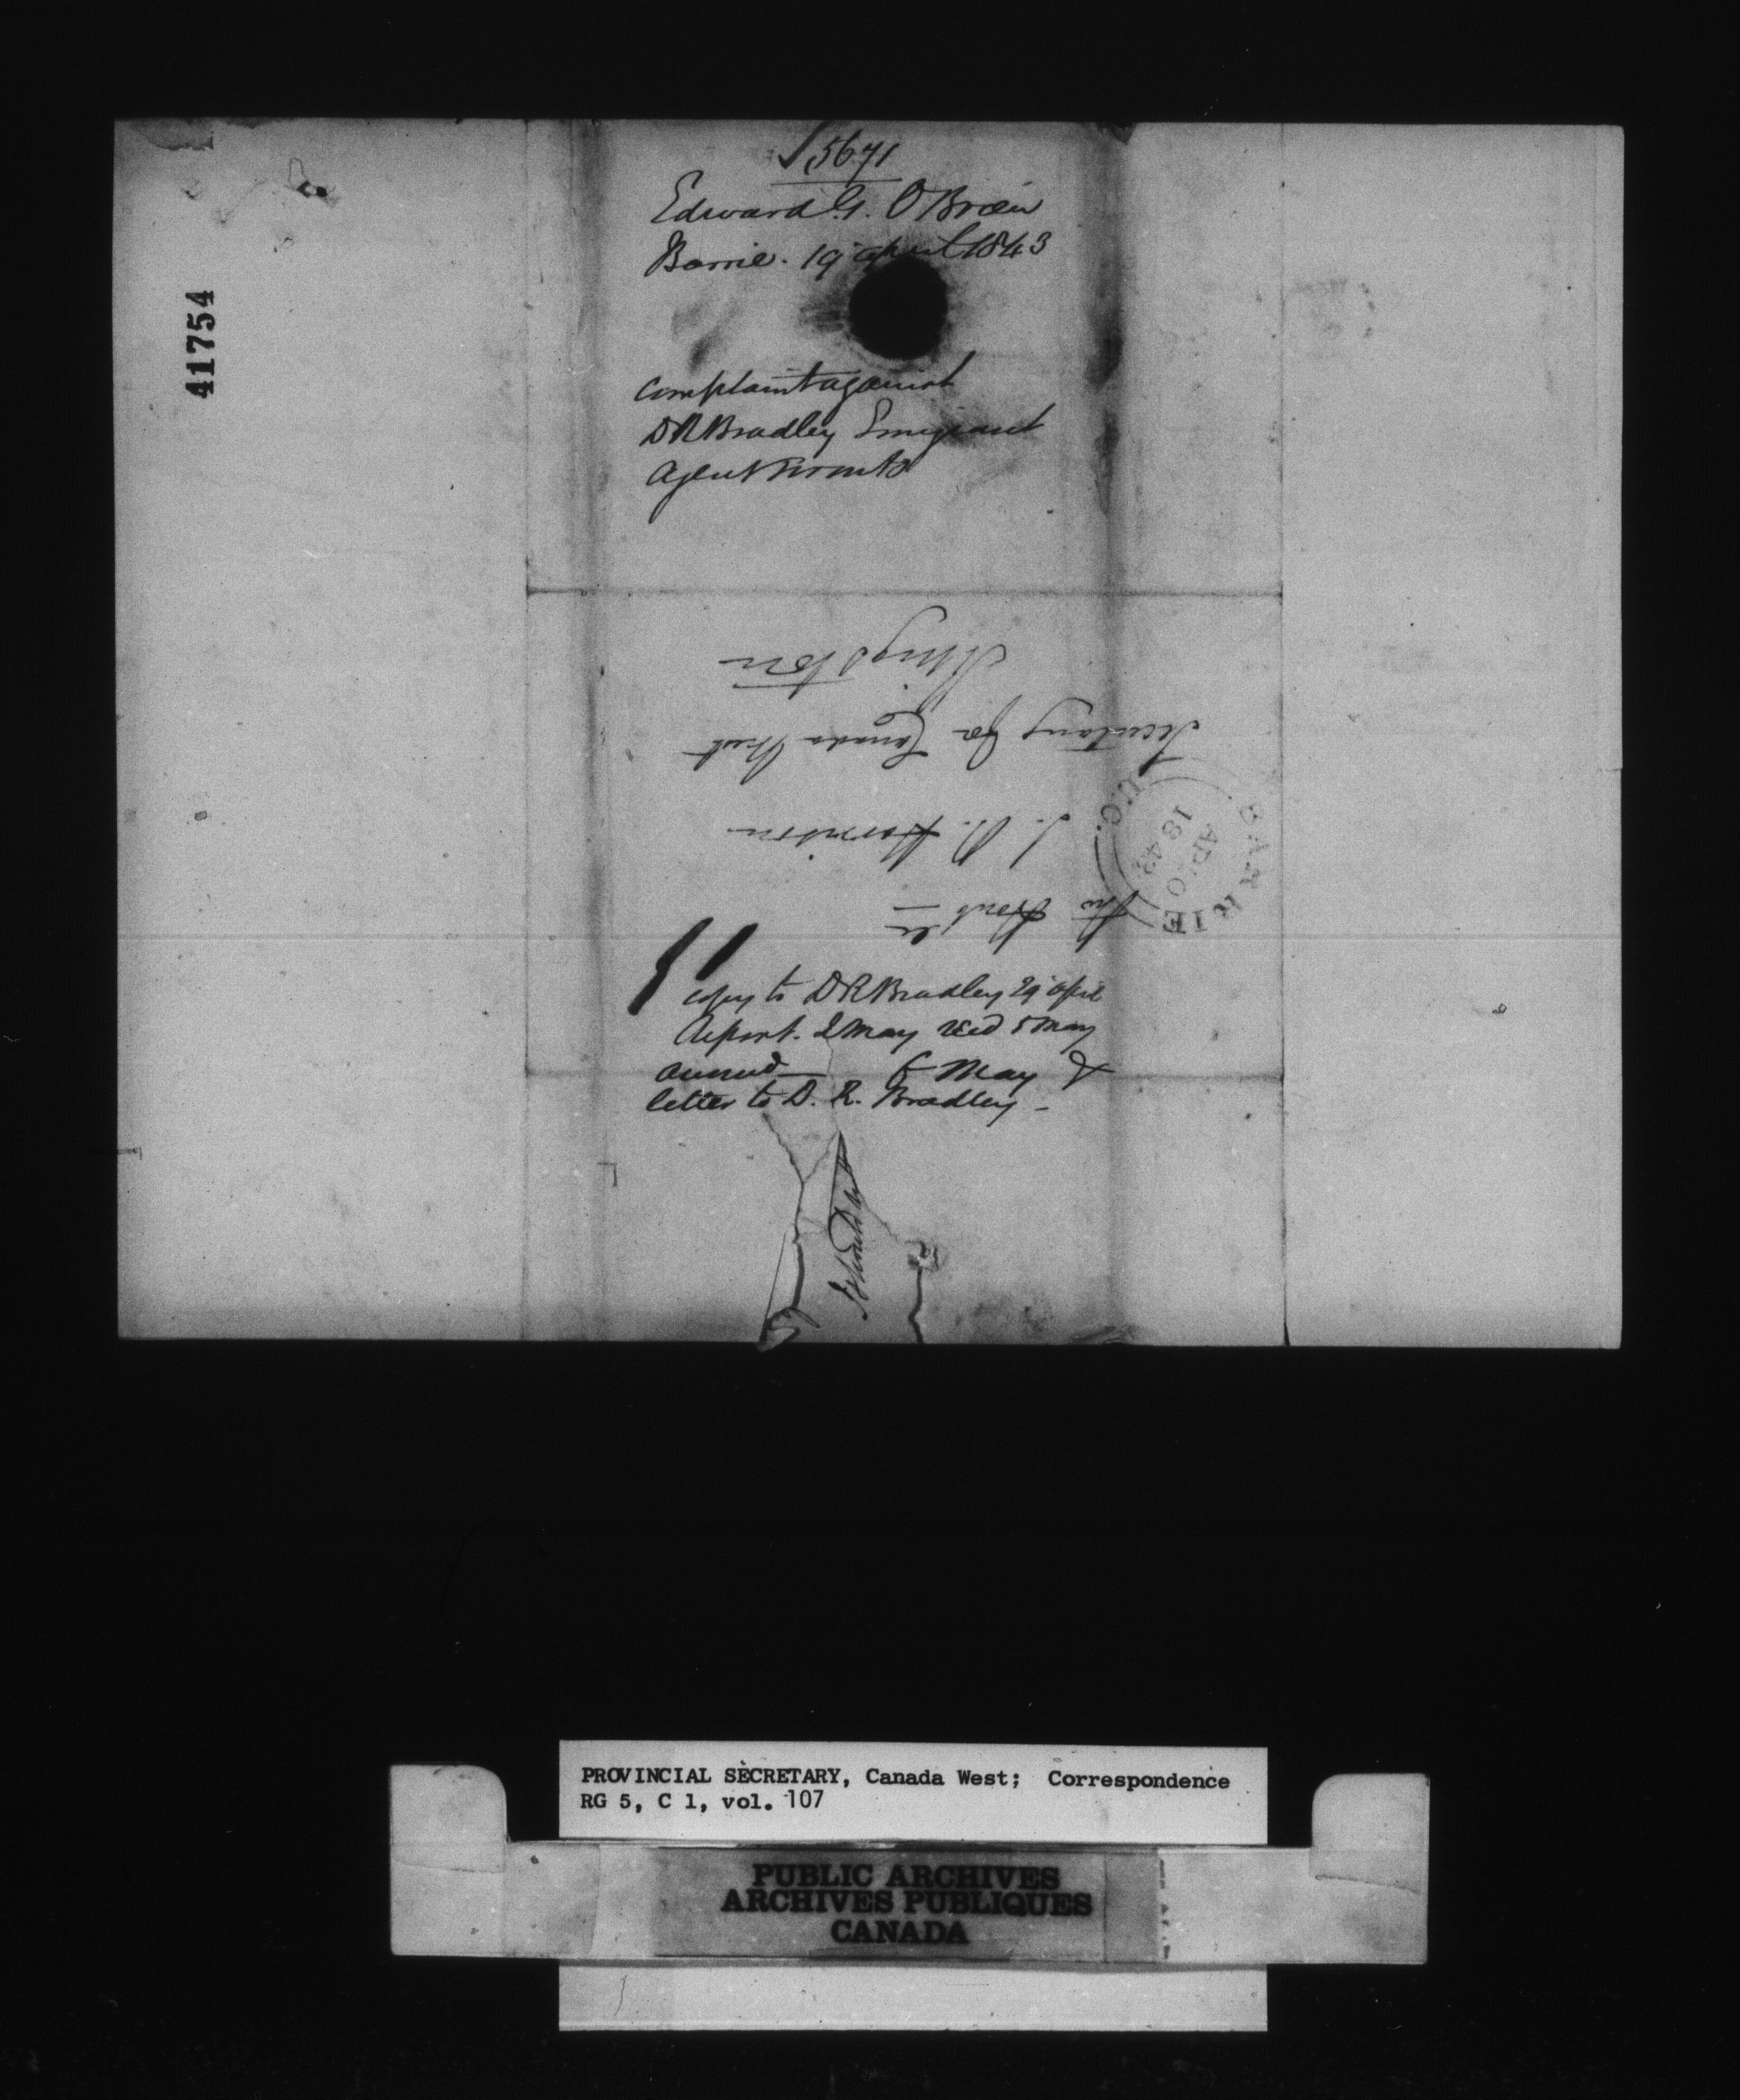 5671
Edward G. O'Brien
Barrie. 19 april 1843
Complaint against
D R Bradley Emigrant
Agent Toronto
41754
The Honble
S. B. Harrison
Secretary for Canada West
Kingston
BARRIE
AP
1843
U.C.
Copy to D R Bradley 29 april
Report. 2 May recd 5 May
answd — 6 May &
letter to D. R. Bradley -
PROVINCIAL SECRETARY, Canada West; Correspondence
RG 5, C 1, vol. 107
PUBLIC ARCHIVES
ARCHIVES PUBLIQUES
CANADA